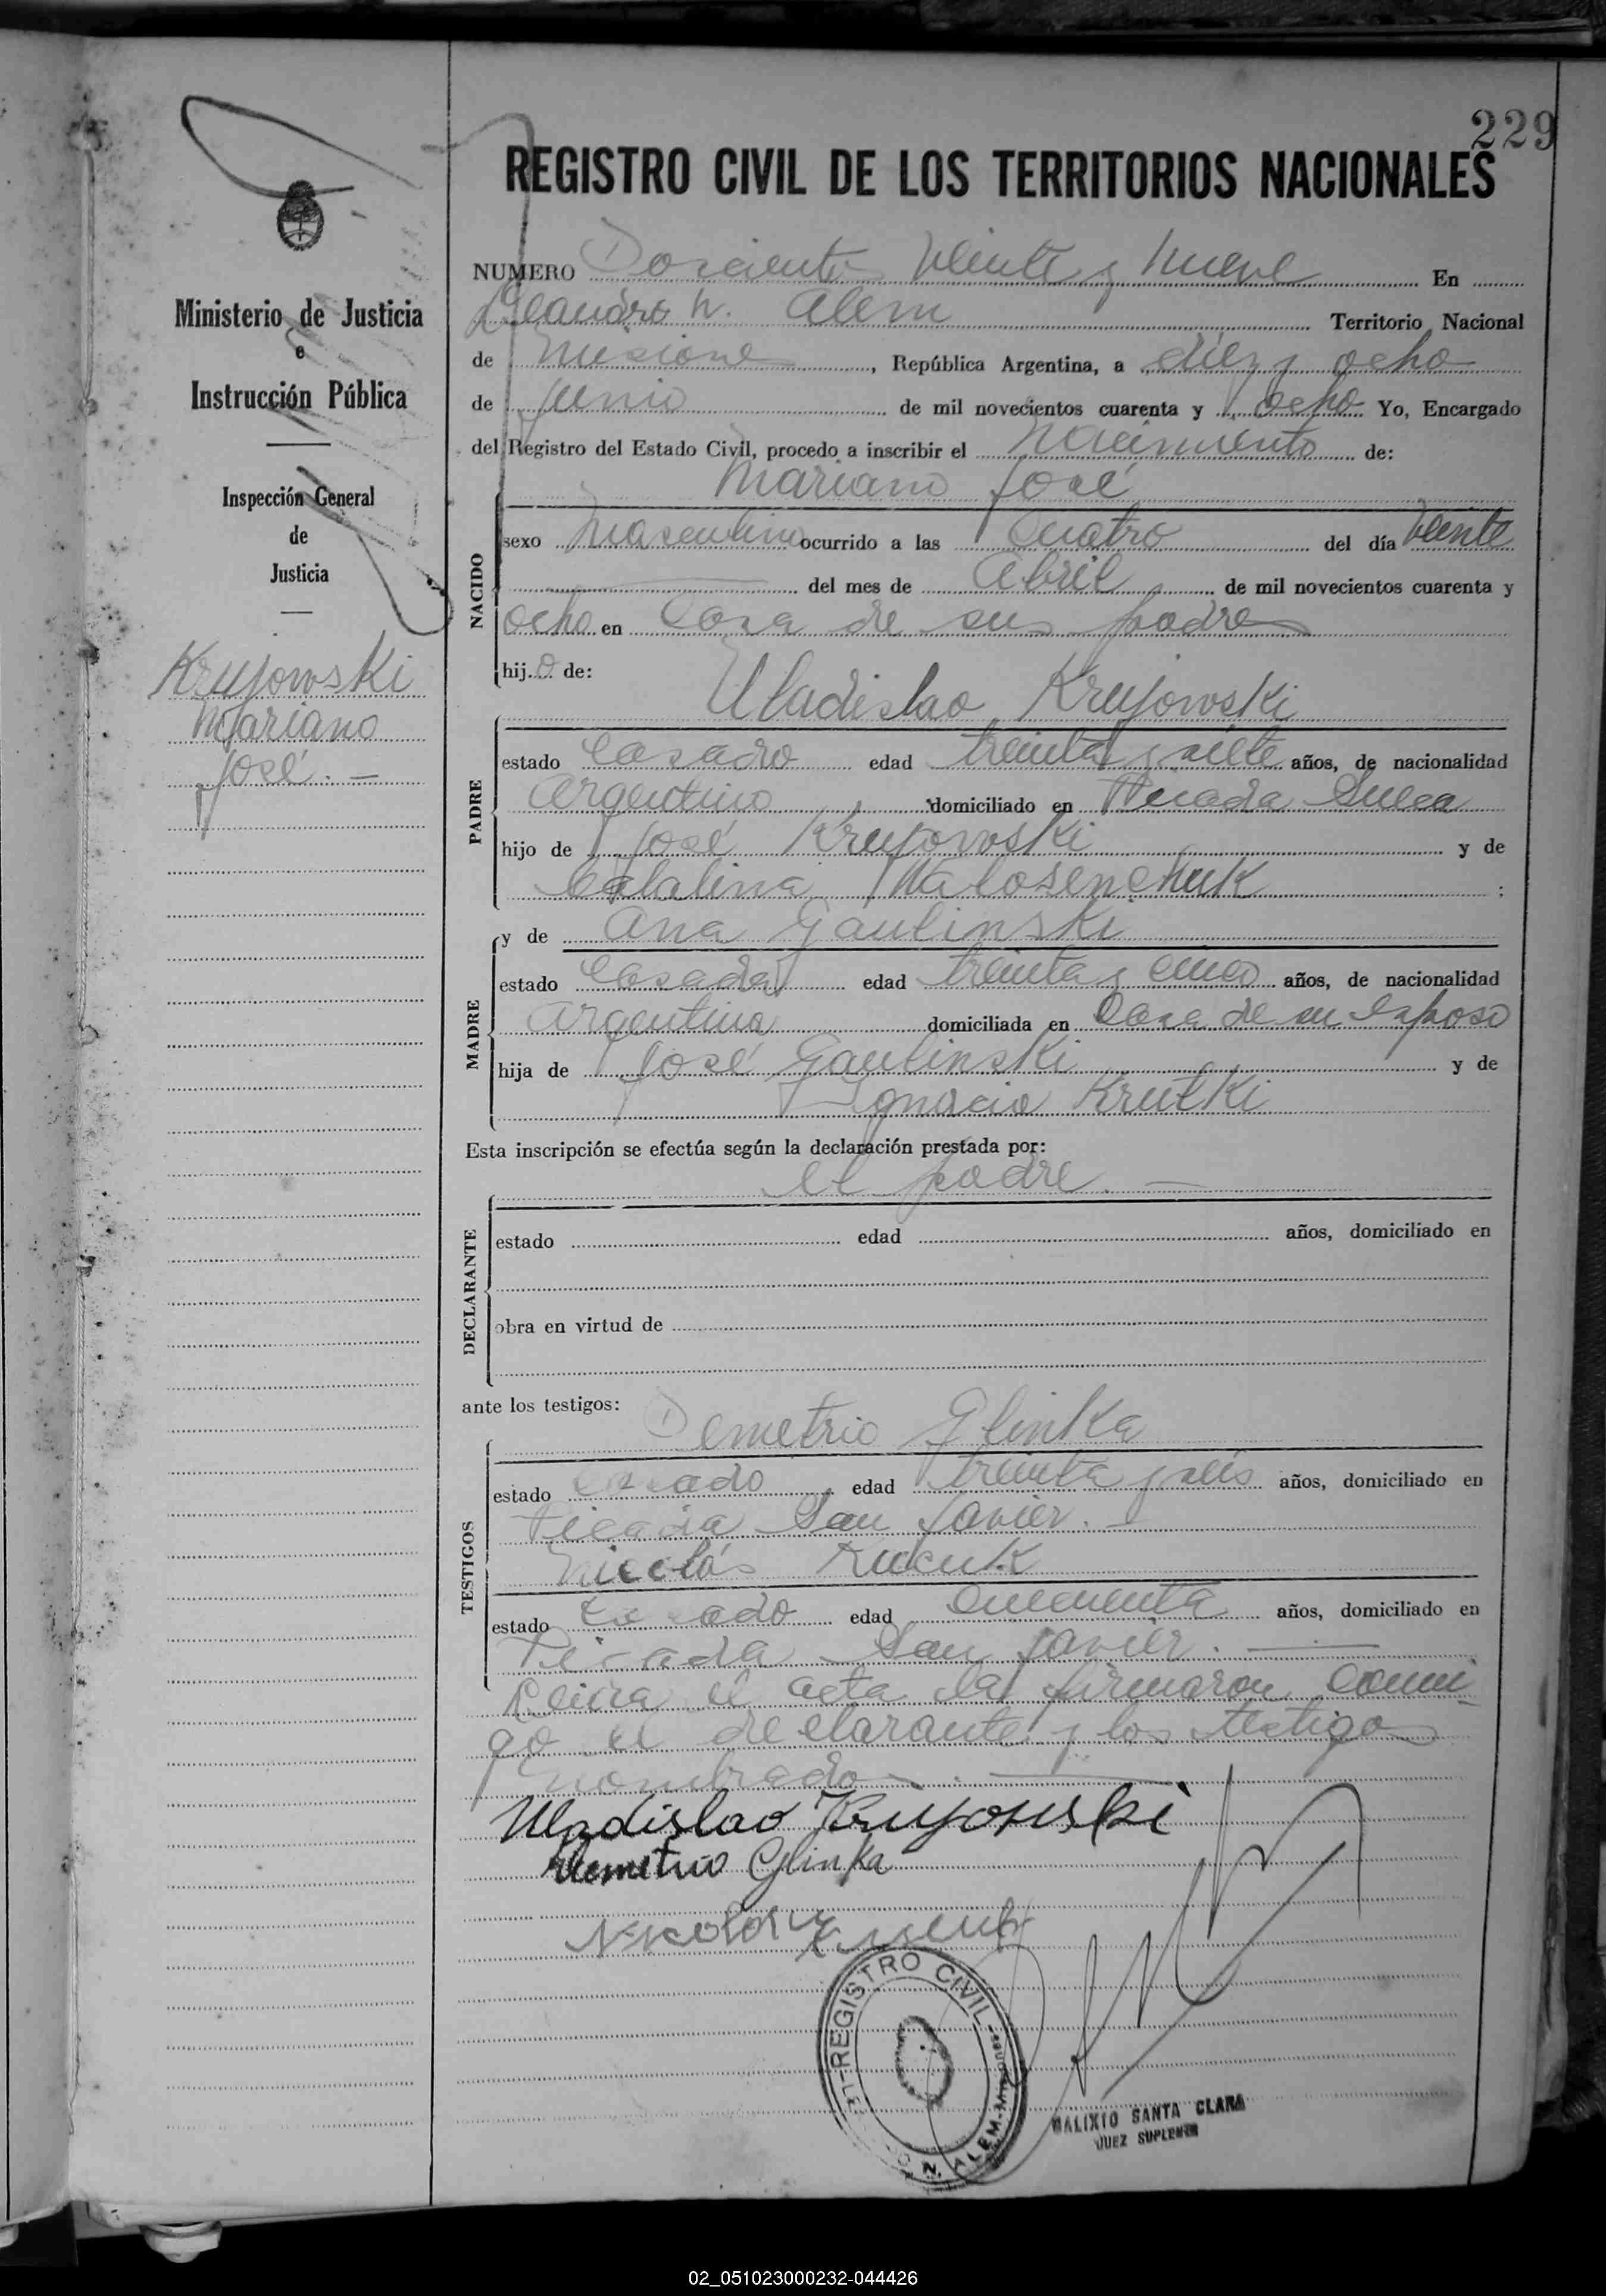 229
REGISTRO CIVIL DE LOS TERRITORIOS NACIONALES
Ministerio de Justicia
e
Instrucción Pública
Inspección General
de
Justicia
Krujowski
Mariano
José. —
NUMERO Doscientos veinte y nueve En
Leandro N. Alem Territorio Nacional
de Misiones, República Argentina, a diez y ocho
de Junio de mil novecientos cuarenta y ocho Yo, Encargado
del Registro del Estado Civil, procedo a inscribir el nacimiento de:
Mariano José
NACIDO
sexo Masculino ocurrido a las cuatro del día veinte
del mes de Abril de mil novecientos cuarenta y
ocho en Casa de sus padres
hijo de:
Uladislao Krujowski
PADRE
estado Casado edad treinta y siete años, de nacionalidad
Argentino domiciliado en Picada
hijo de José Krujowski y de
Catalina ;
y de Ana Gaulinski
MADRE
estado Casada edad treinta y cinco años, de nacionalidad
Argentina domiciliada en Casa de su esposo
hija de José Gaulinski y de
Ignacia Krutki
Esta inscripción se efectúa según la declaración prestada por:
el padre. —
DECLARANTE
estado edad años, domiciliado en
obra en virtud de
ante los testigos:
Demetrio Glinka
TESTIGOS
estado casado edad treinta y seis años, domiciliado en
Picada San Javier. —
Nicolás
estado Casado edad cincuenta años, domiciliado en
Picada San Javier. —
Leida el acta la firmaron conmi
go el declarante y los testigos
nombrados. —
Uladislao Krujowski
Demetrio Glinka
REGISTRO CIVIL
N. ALEM - MISIONES
CALIXTO SANTA CLARA
JUEZ SUPLENTE
02_051023000232-044426